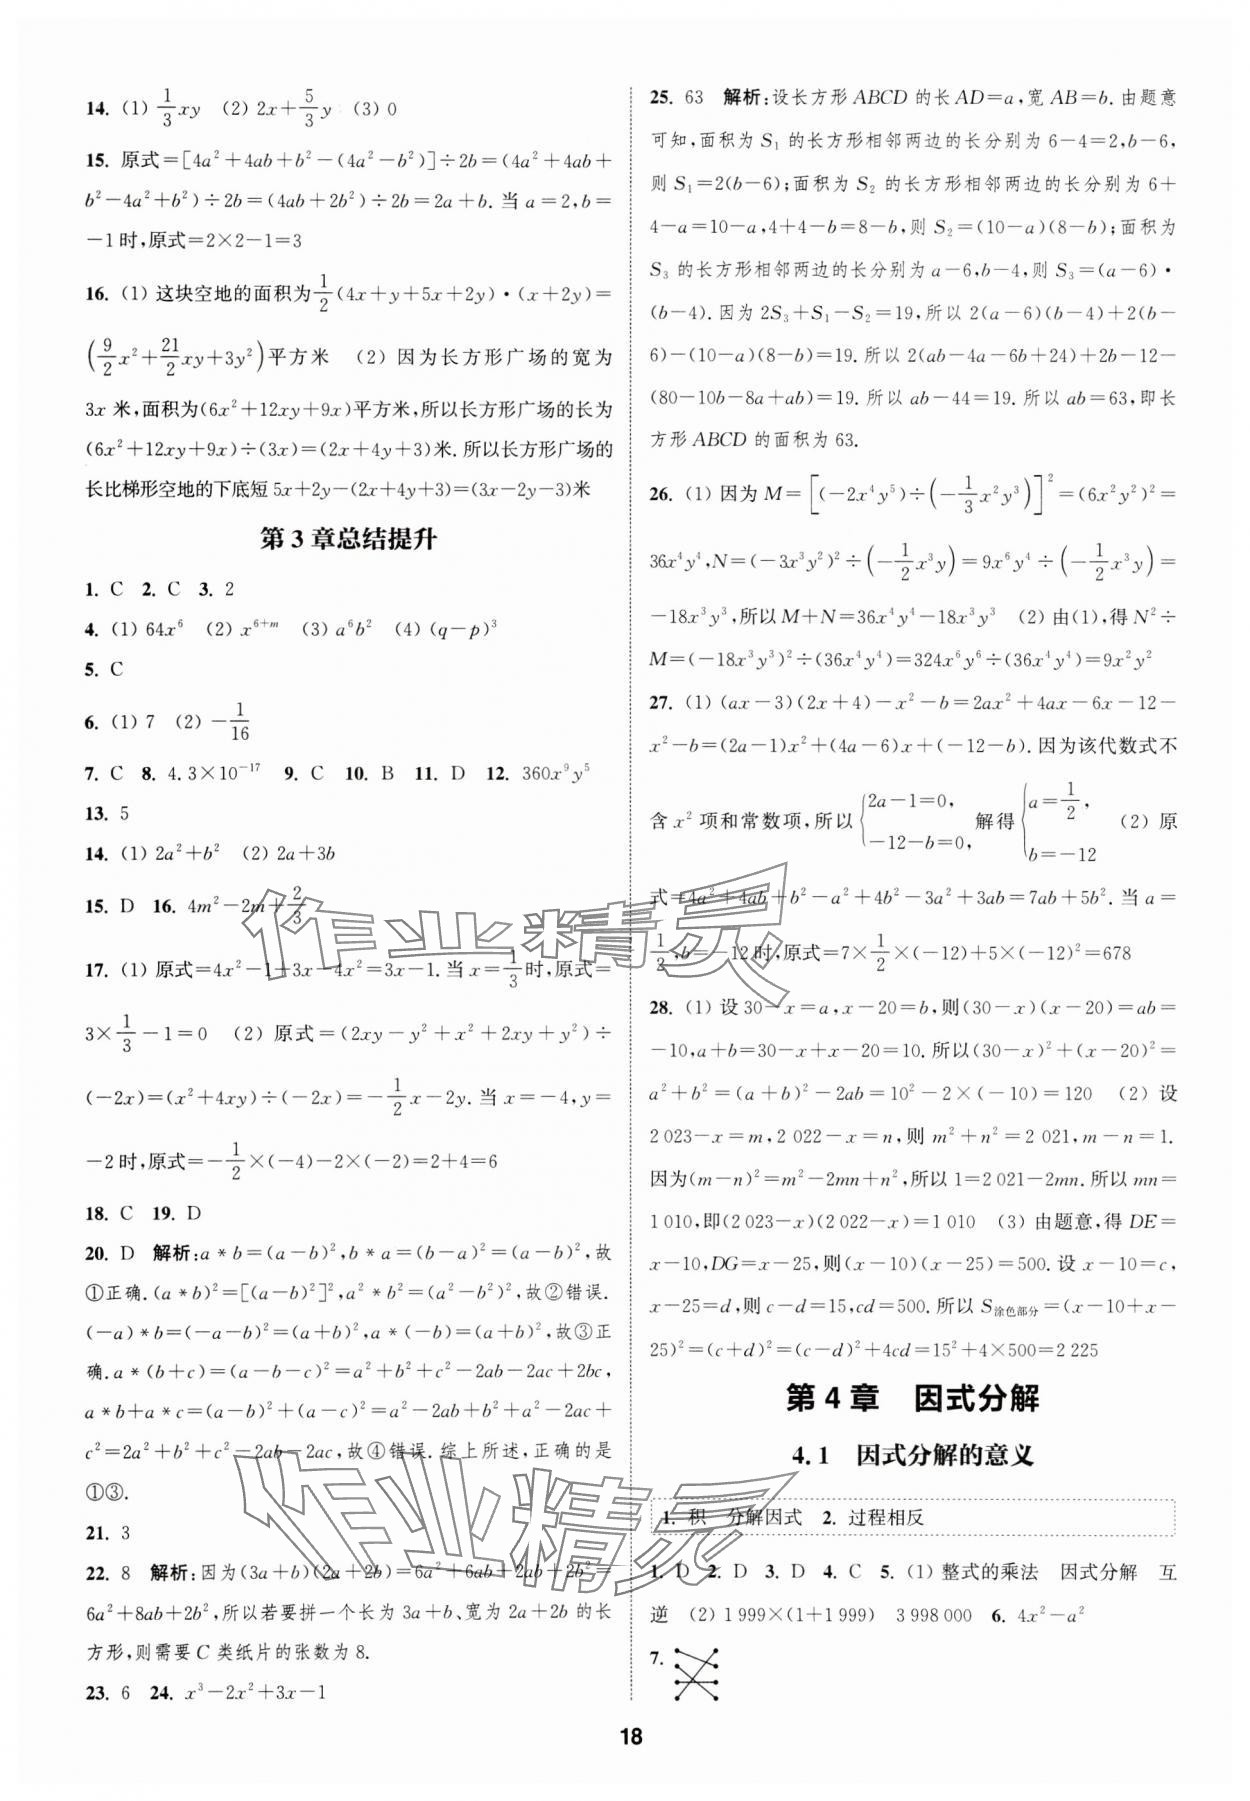 14. (1) 1/3 xy (2) 2x+5/3 y (3) 0
15. 原式=[4a²+4ab+b²-(4a²-b²)]÷2b=(4a²+4ab+
b²-4a²+b²)÷2b=(4ab+2b²)÷2b=2a+b. 当 a=2,b=
-1时,原式=2×2-1=3
16. (1) 这块空地的面积为1/2(4x+y+5x+2y)·(x+2y)=
(9/2 x²+21/2 xy+3y²)平方米 (2) 因为长方形广场的宽为
3x 米,面积为(6x²+12xy+9x)平方米,所以长方形广场的长为
(6x²+12xy+9x)÷(3x)=(2x+4y+3)米. 所以长方形广场的
长比梯形空地的下底短 5x+2y-(2x+4y+3)=(3x-2y-3)米
第 3 章总结提升
1. C 2. C 3. 2
4. (1) 64x⁶ (2) x⁶⁺ᵐ (3) a⁶b² (4) (q-p)³
5. C
6. (1) 7 (2) -1/16
7. C 8. 4.3×10⁻¹⁷ 9. C 10. B 11. D 12. 360x⁹y⁵
13. 5
14. (1) 2a²+b² (2) 2a+3b
15. D 16. 4m²-2m+2/3
17. (1) 原式=4x²-1+3x-4x²=3x-1. 当 x=1/3时,原式=
3×1/3-1=0 (2) 原式=(2xy-y²+x²+2xy+y²)÷
(-2x)=(x²+4xy)÷(-2x)=-1/2 x-2y. 当 x=-4,y=
-2时,原式=-1/2×(-4)-2×(-2)=2+4=6
18. C 19. D
20. D 解析:a*b=(a-b)²,b*a=(b-a)²=(a-b)²,故
①正确. (a*b)²=[(a-b)²]²,a²*b²=(a²-b²)²,故②错误.
(-a)*b=(-a-b)²=(a+b)²,a*(-b)=(a+b)²,故③正
确. a*(b+c)=(a-b-c)²=a²+b²+c²-2ab-2ac+2bc,
a*b+a*c=(a-b)²+(a-c)²=a²-2ab+b²+a²-2ac+
c²=2a²+b²+c²-2ab-2ac,故④错误. 综上所述,正确的是
①③.
21. 3
22. 8 解析:因为(3a+b)(2a+2b)=6a²+6ab+2ab+2b²=
6a²+8ab+2b²,所以若要拼一个长为 3a+b、宽为 2a+2b 的长
方形,则需要 C 类纸片的张数为 8.
23. 6 24. x³-2x²+3x-1
25. 63 解析:设长方形 ABCD 的长 AD=a,宽 AB=b. 由题意
可知,面积为 S₁ 的长方形相邻两边的长分别为 6-4=2,b-6,
则 S₁=2(b-6);面积为 S₂ 的长方形相邻两边的长分别为 6+
4-a=10-a,4+4-b=8-b,则 S₂=(10-a)(8-b);面积为
S₃ 的长方形相邻两边的长分别为 a-6,b-4,则 S₃=(a-6)·
(b-4). 因为 2S₃+S₁-S₂=19,所以 2(a-6)(b-4)+2(b-
6)-(10-a)(8-b)=19. 所以 2(ab-4a-6b+24)+2b-12-
(80-10b-8a+ab)=19. 所以 ab-44=19. 所以 ab=63,即长
方形 ABCD 的面积为 63.
26. (1) 因为 M=[(-2x⁴y⁵)÷(-1/3 x²y³)]²=(6x²y²)²=
36x⁴y⁴,N=(-3x³y²)²÷(-1/2 x³y)=9x⁶y⁴÷(-1/2 x³y)=
-18x³y³,所以 M+N=36x⁴y⁴-18x³y³ (2) 由(1),得 N²÷
M=(-18x³y³)²÷(36x⁴y⁴)=324x⁶y⁶÷(36x⁴y⁴)=9x²y²
27. (1) (ax-3)(2x+4)-x²-b=2ax²+4ax-6x-12-
x²-b=(2a-1)x²+(4a-6)x+(-12-b). 因为该代数式不
含 x² 项和常数项,所以 {2a-1=0, -12-b=0, 解得 {a=1/2, b=-12 (2) 原
式=4a²+4ab+b²-a²+4b²-3a²+3ab=7ab+5b². 当 a=
1/2,b=-12时,原式=7×1/2×(-12)+5×(-12)²=678
28. (1) 设 30-x=a,x-20=b,则(30-x)(x-20)=ab=
-10,a+b=30-x+x-20=10. 所以(30-x)²+(x-20)²=
a²+b²=(a+b)²-2ab=10²-2×(-10)=120 (2) 设
2 023-x=m,2 022-x=n,则 m²+n²=2 021,m-n=1.
因为(m-n)²=m²-2mn+n²,所以 1=2 021-2mn. 所以 mn=
1 010,即(2 023-x)(2 022-x)=1 010 (3) 由题意,得 DE=
x-10,DG=x-25,所以(x-10)(x-25)=500. 设 x-10=c,
x-25=d,则 c-d=15,cd=500. 所以 S涂色部分=(x-10+x-
25)²=(c+d)²=(c-d)²+4cd=15²+4×500=2 225
第 4 章 因式分解
4.1 因式分解的意义
1. 积 分解因式 2. 过程相反
1. D 2. D 3. D 4. C 5. (1) 整式的乘法 因式分解 互
逆 (2) 1 999×(1+1 999) 3 998 000 6. 4x²-a²
7.
18
作业精灵
作业精灵